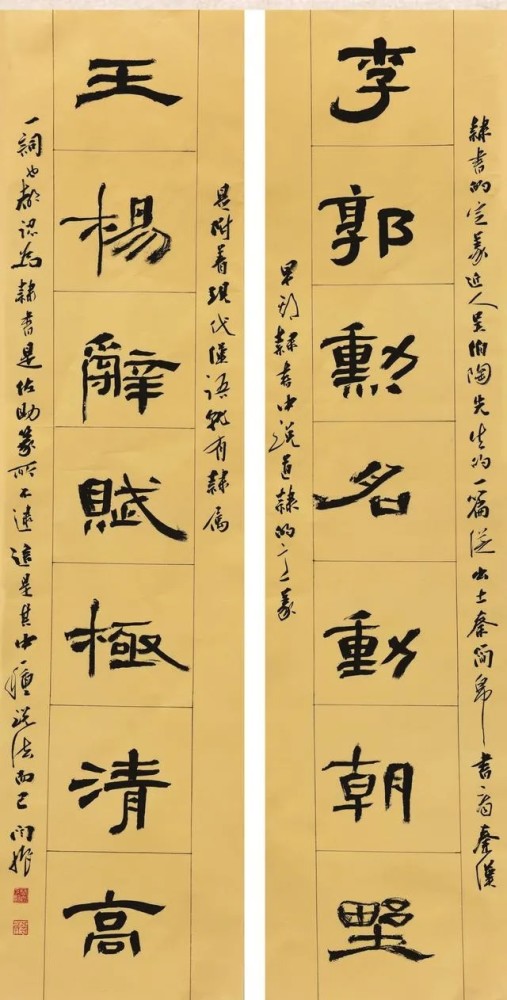 隸書的定義近人吴伯陶先生的一篇從出土秦简帛书看秦漢
李郭勳名動朝野
早期隸書中说道隸的定義
是附着現代漢語就有隸属
王楊辭賦極清高
一詞也都認為隸書是佐助篆所不逮這是其中一種説法而已